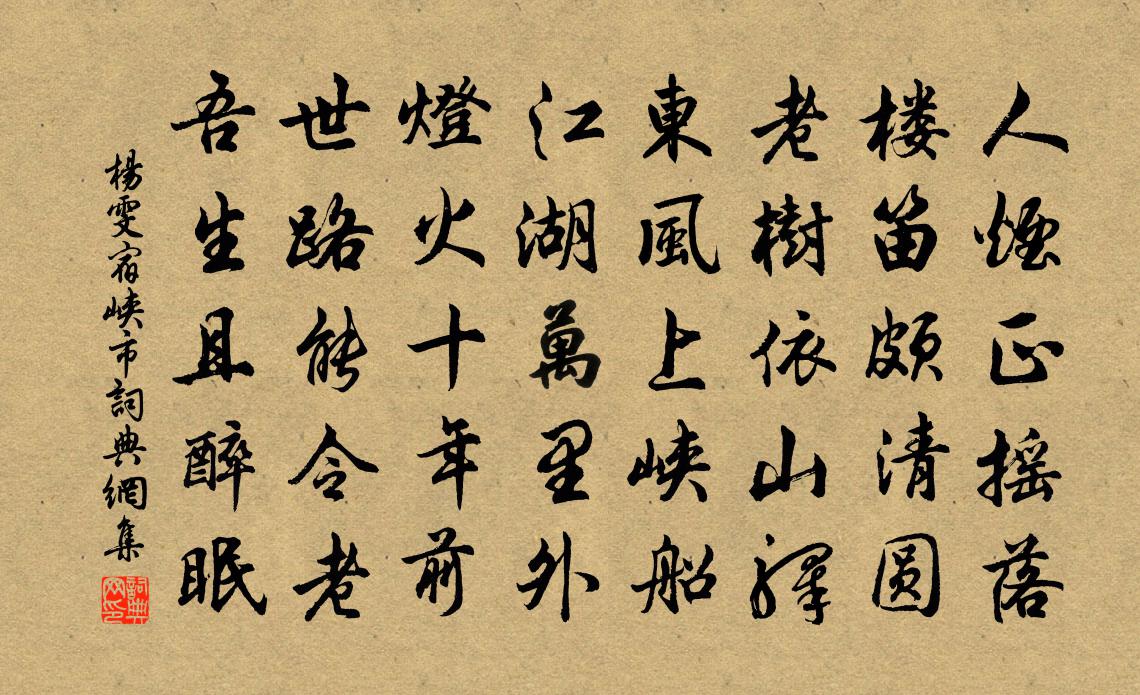 人煙正摇落
楼笛頗清圆
老樹依山驛
東風上峡船
江湖萬里外
燈火十年前
世路能令老
吾生且醉眠
楊雯宿峡市詞典網集
詞典网印